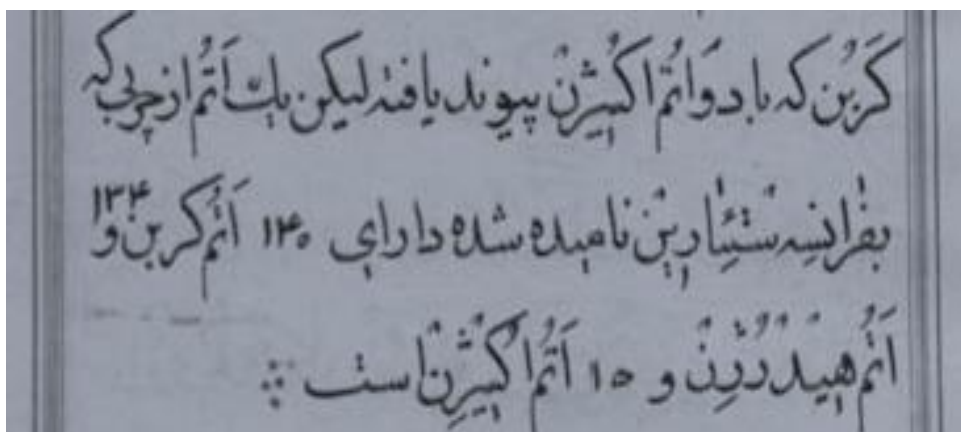 کَربُن که با دو اَتُم اکسیژن پیوند یافته لیکن یک اَتُم از چربی که
بفرانسه ستئارین نامیده شده دارای ۱۴۰ اَتُم کربن و ۱۳۴
اَتُم هیدرژن و ۱۵ اَتُم اکسیژن است